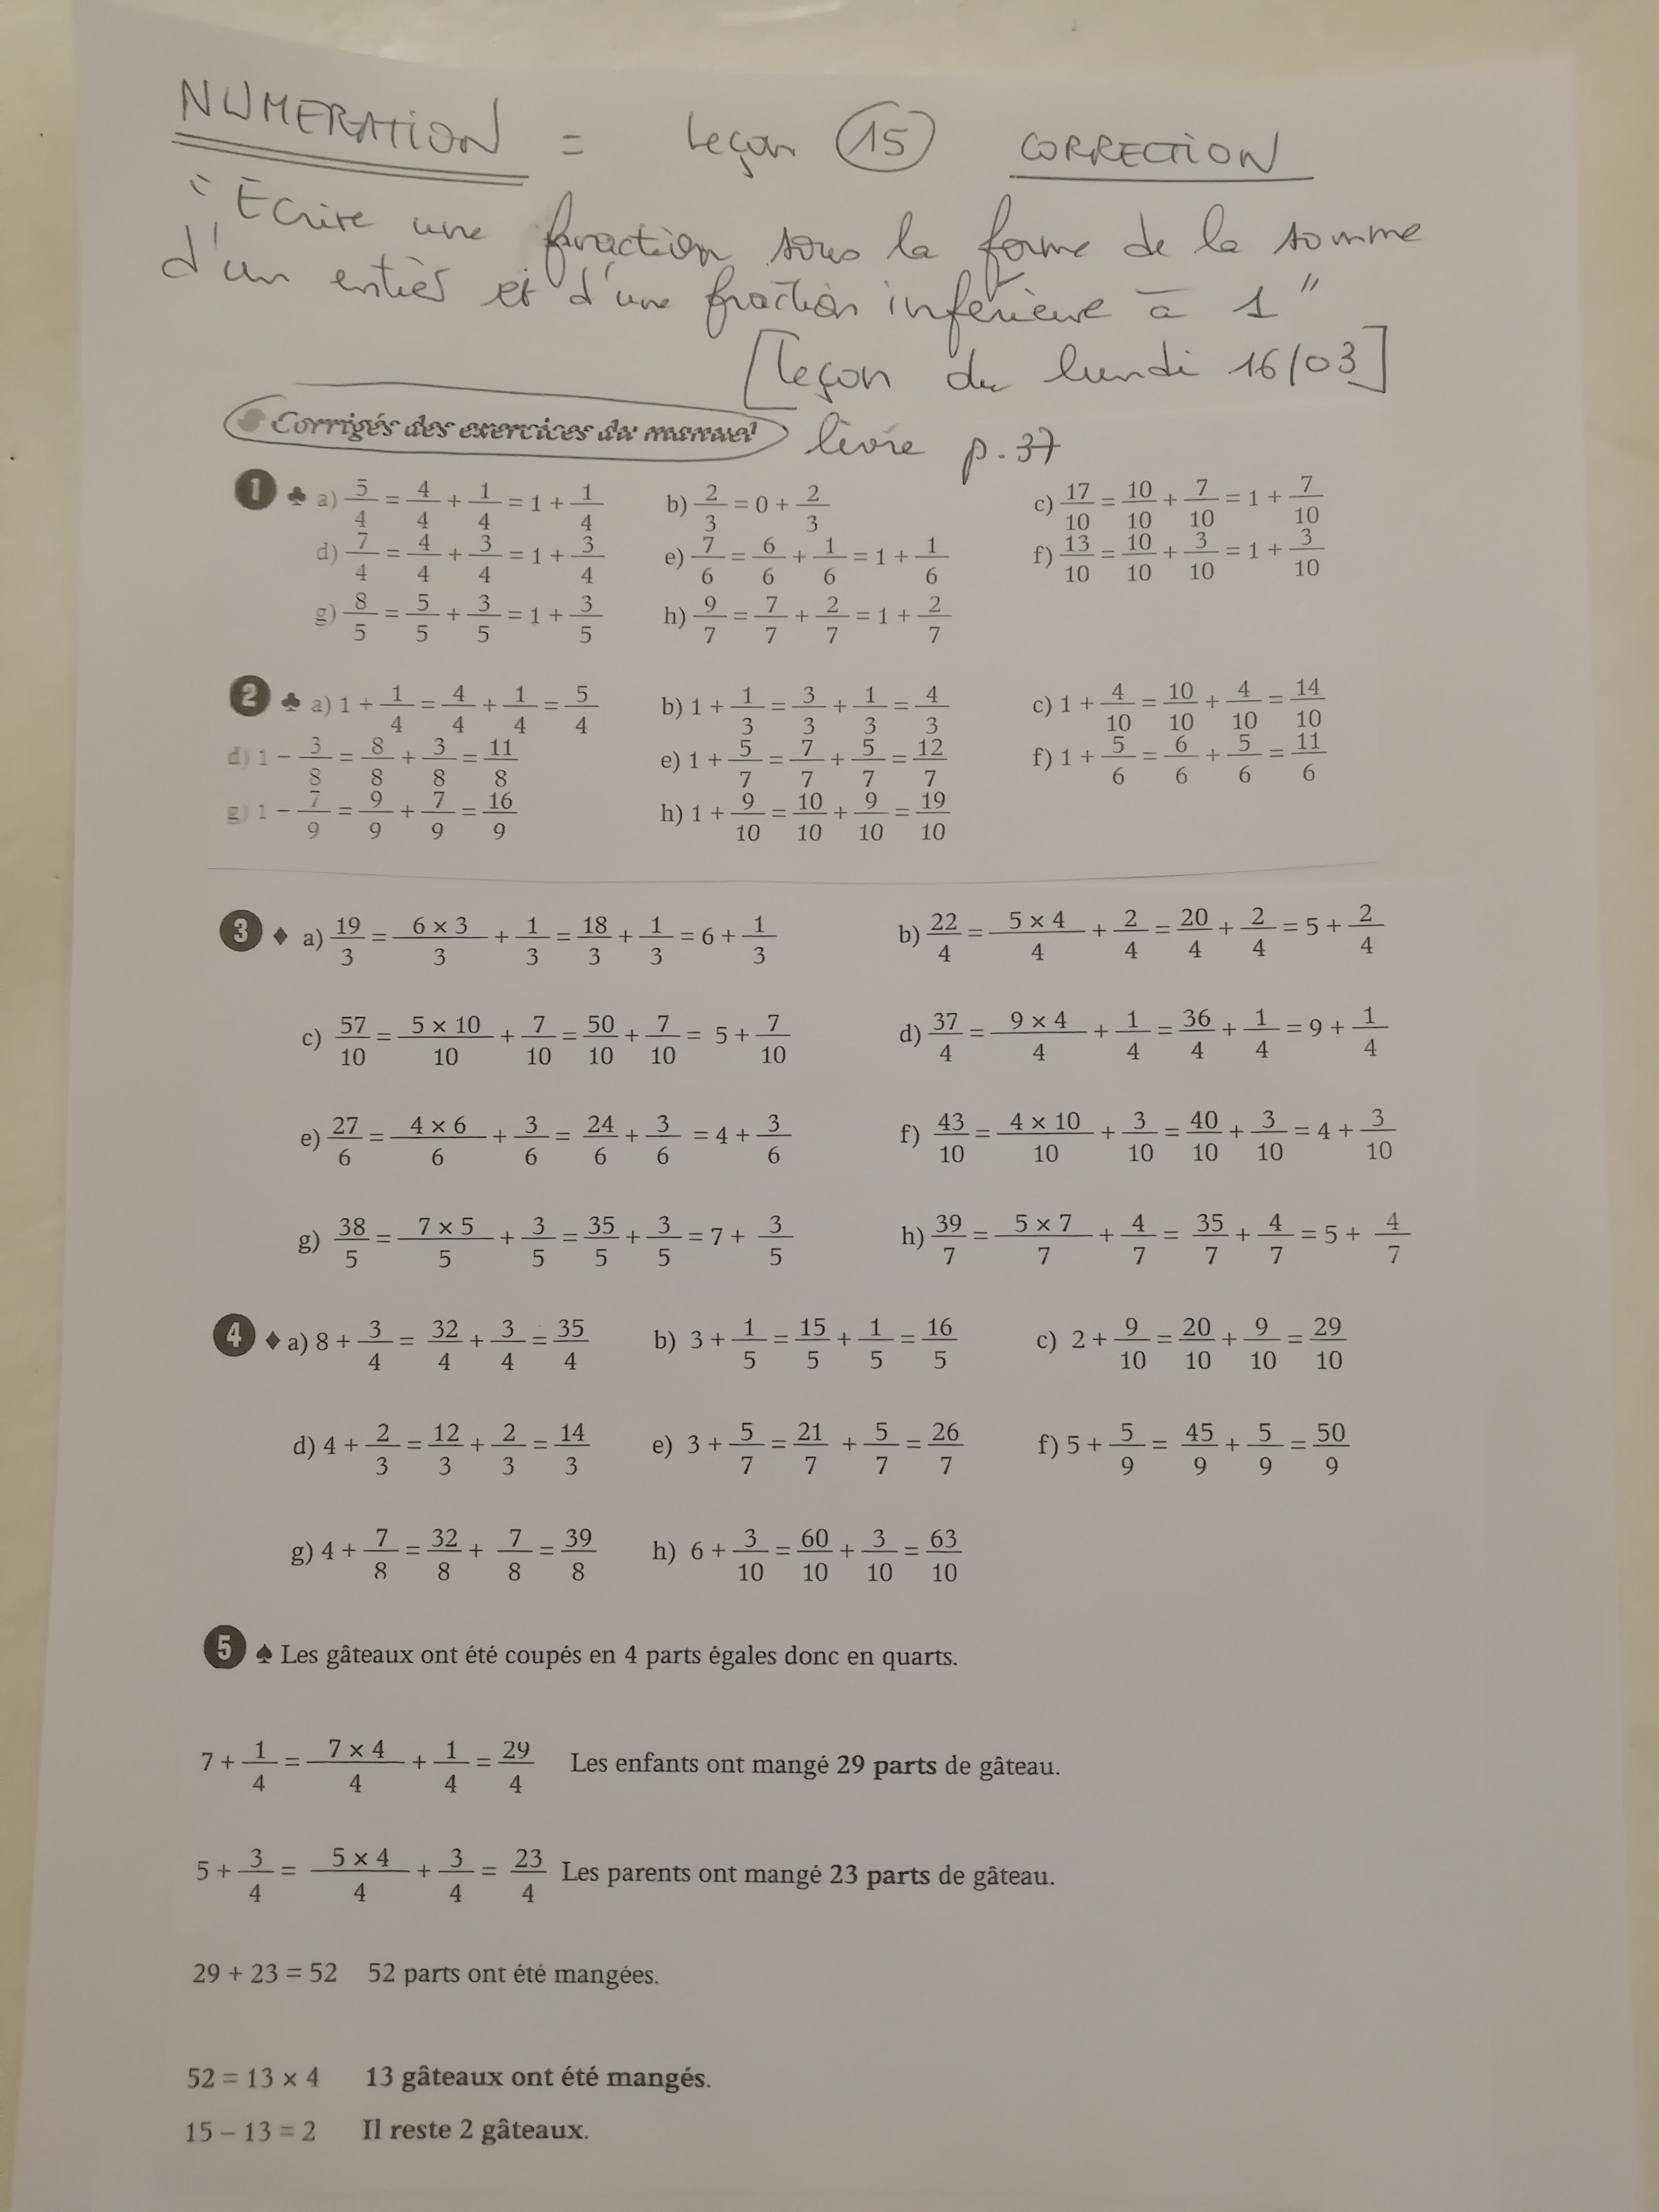 NUMERATION = leçon 15 CORRECTION
"Ecrire une fraction sous la forme de la somme
d'un entier et d'une fraction inférieure à 1"
[leçon du lundi 16/03]
Corrigés des exercices du manuel livre p.37
1 ♣ a) 5/4 = 4/4 + 1/4 = 1 + 1/4 b) 2/3 = 0 + 2/3 c) 17/10 = 10/10 + 7/10 = 1 + 7/10
d) 7/4 = 4/4 + 3/4 = 1 + 3/4 e) 7/6 = 6/6 + 1/6 = 1 + 1/6 f) 13/10 = 10/10 + 3/10 = 1 + 3/10
g) 8/5 = 5/5 + 3/5 = 1 + 3/5 h) 9/7 = 7/7 + 2/7 = 1 + 2/7
2 ♣ a) 1 + 1/4 = 4/4 + 1/4 = 5/4 b) 1 + 1/3 = 3/3 + 1/3 = 4/3 c) 1 + 4/10 = 10/10 + 4/10 = 14/10
d) 1 − 3/8 = 8/8 + 3/8 = 11/8 e) 1 + 5/7 = 7/7 + 5/7 = 12/7 f) 1 + 5/6 = 6/6 + 5/6 = 11/6
g) 1 − 7/9 = 9/9 + 7/9 = 16/9 h) 1 + 9/10 = 10/10 + 9/10 = 19/10
3 ♦ a) 19/3 = 6 × 3/3 + 1/3 = 18/3 + 1/3 = 6 + 1/3 b) 22/4 = 5 × 4/4 + 2/4 = 20/4 + 2/4 = 5 + 2/4
c) 57/10 = 5 × 10/10 + 7/10 = 50/10 + 7/10 = 5 + 7/10 d) 37/4 = 9 × 4/4 + 1/4 = 36/4 + 1/4 = 9 + 1/4
e) 27/6 = 4 × 6/6 + 3/6 = 24/6 + 3/6 = 4 + 3/6 f) 43/10 = 4 × 10/10 + 3/10 = 40/10 + 3/10 = 4 + 3/10
g) 38/5 = 7 × 5/5 + 3/5 = 35/5 + 3/5 = 7 + 3/5 h) 39/7 = 5 × 7/7 + 4/7 = 35/7 + 4/7 = 5 + 4/7
4 ♦ a) 8 + 3/4 = 32/4 + 3/4 = 35/4 b) 3 + 1/5 = 15/5 + 1/5 = 16/5 c) 2 + 9/10 = 20/10 + 9/10 = 29/10
d) 4 + 2/3 = 12/3 + 2/3 = 14/3 e) 3 + 5/7 = 21/7 + 5/7 = 26/7 f) 5 + 5/9 = 45/9 + 5/9 = 50/9
g) 4 + 7/8 = 32/8 + 7/8 = 39/8 h) 6 + 3/10 = 60/10 + 3/10 = 63/10
5 ♠ Les gâteaux ont été coupés en 4 parts égales donc en quarts.
7 + 1/4 = 7 × 4/4 + 1/4 = 29/4 Les enfants ont mangé 29 parts de gâteau.
5 + 3/4 = 5 × 4/4 + 3/4 = 23/4 Les parents ont mangé 23 parts de gâteau.
29 + 23 = 52 52 parts ont été mangées.
52 = 13 × 4 13 gâteaux ont été mangés.
15 − 13 = 2 Il reste 2 gâteaux.